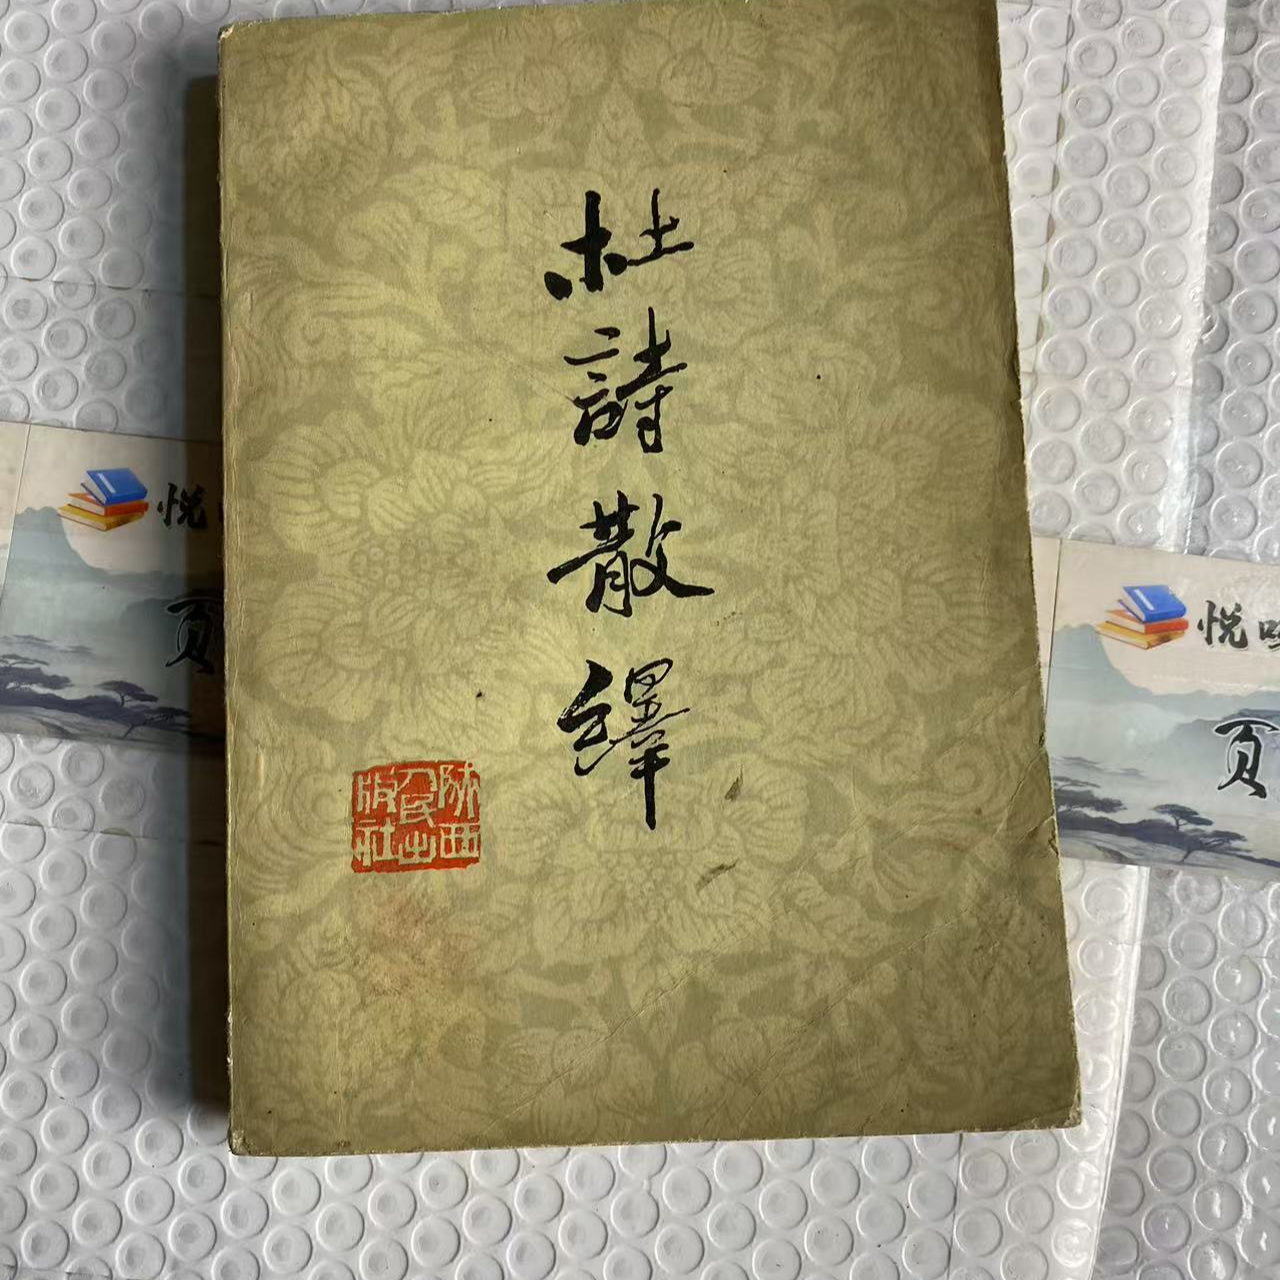 杜詩散繹
陕西
人民出
版社
悦
頁
悦
頁